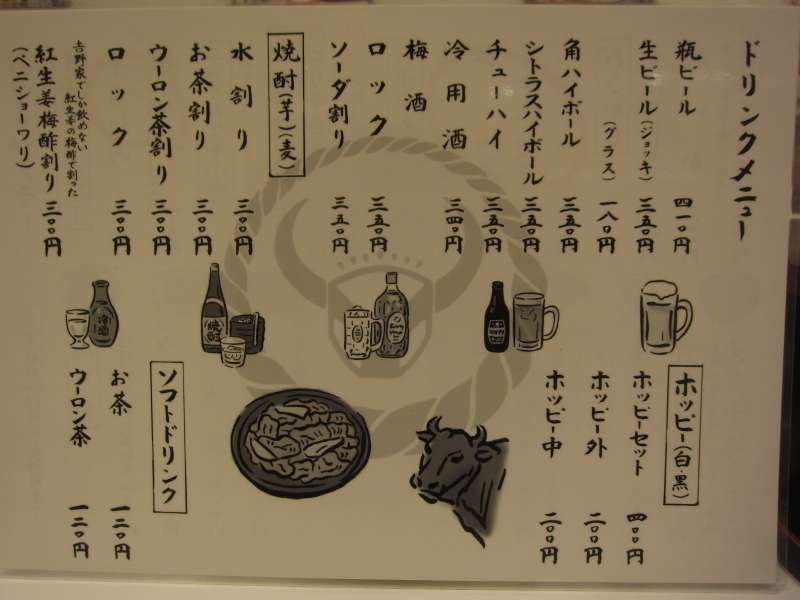 ドリンクメニュー
瓶ビール 四一〇円
生ビール(ジョッキ) 三五〇円
(グラス) 一八〇円
角ハイボール 三五〇円
シトラスハイボール 三五〇円
チューハイ 三五〇円
冷用酒 三四〇円
梅酒
ロック 三五〇円
ソーダ割り 三五〇円
焼酎(芋)(麦)
水割り 三〇〇円
お茶割り 三〇〇円
ウーロン茶割り 三〇〇円
ロック 三〇〇円
吉野家でしか飲めない
紅生姜の梅酢で割った
紅生姜梅酢割り 三〇〇円
(ベニショーワリ)
ホッピー(白・黒)
ホッピーセット 四〇〇円
ホッピー外 二〇〇円
ホッピー中 二〇〇円
ソフトドリンク
お茶 一二〇円
ウーロン茶 一二〇円
焼酎
冷酒